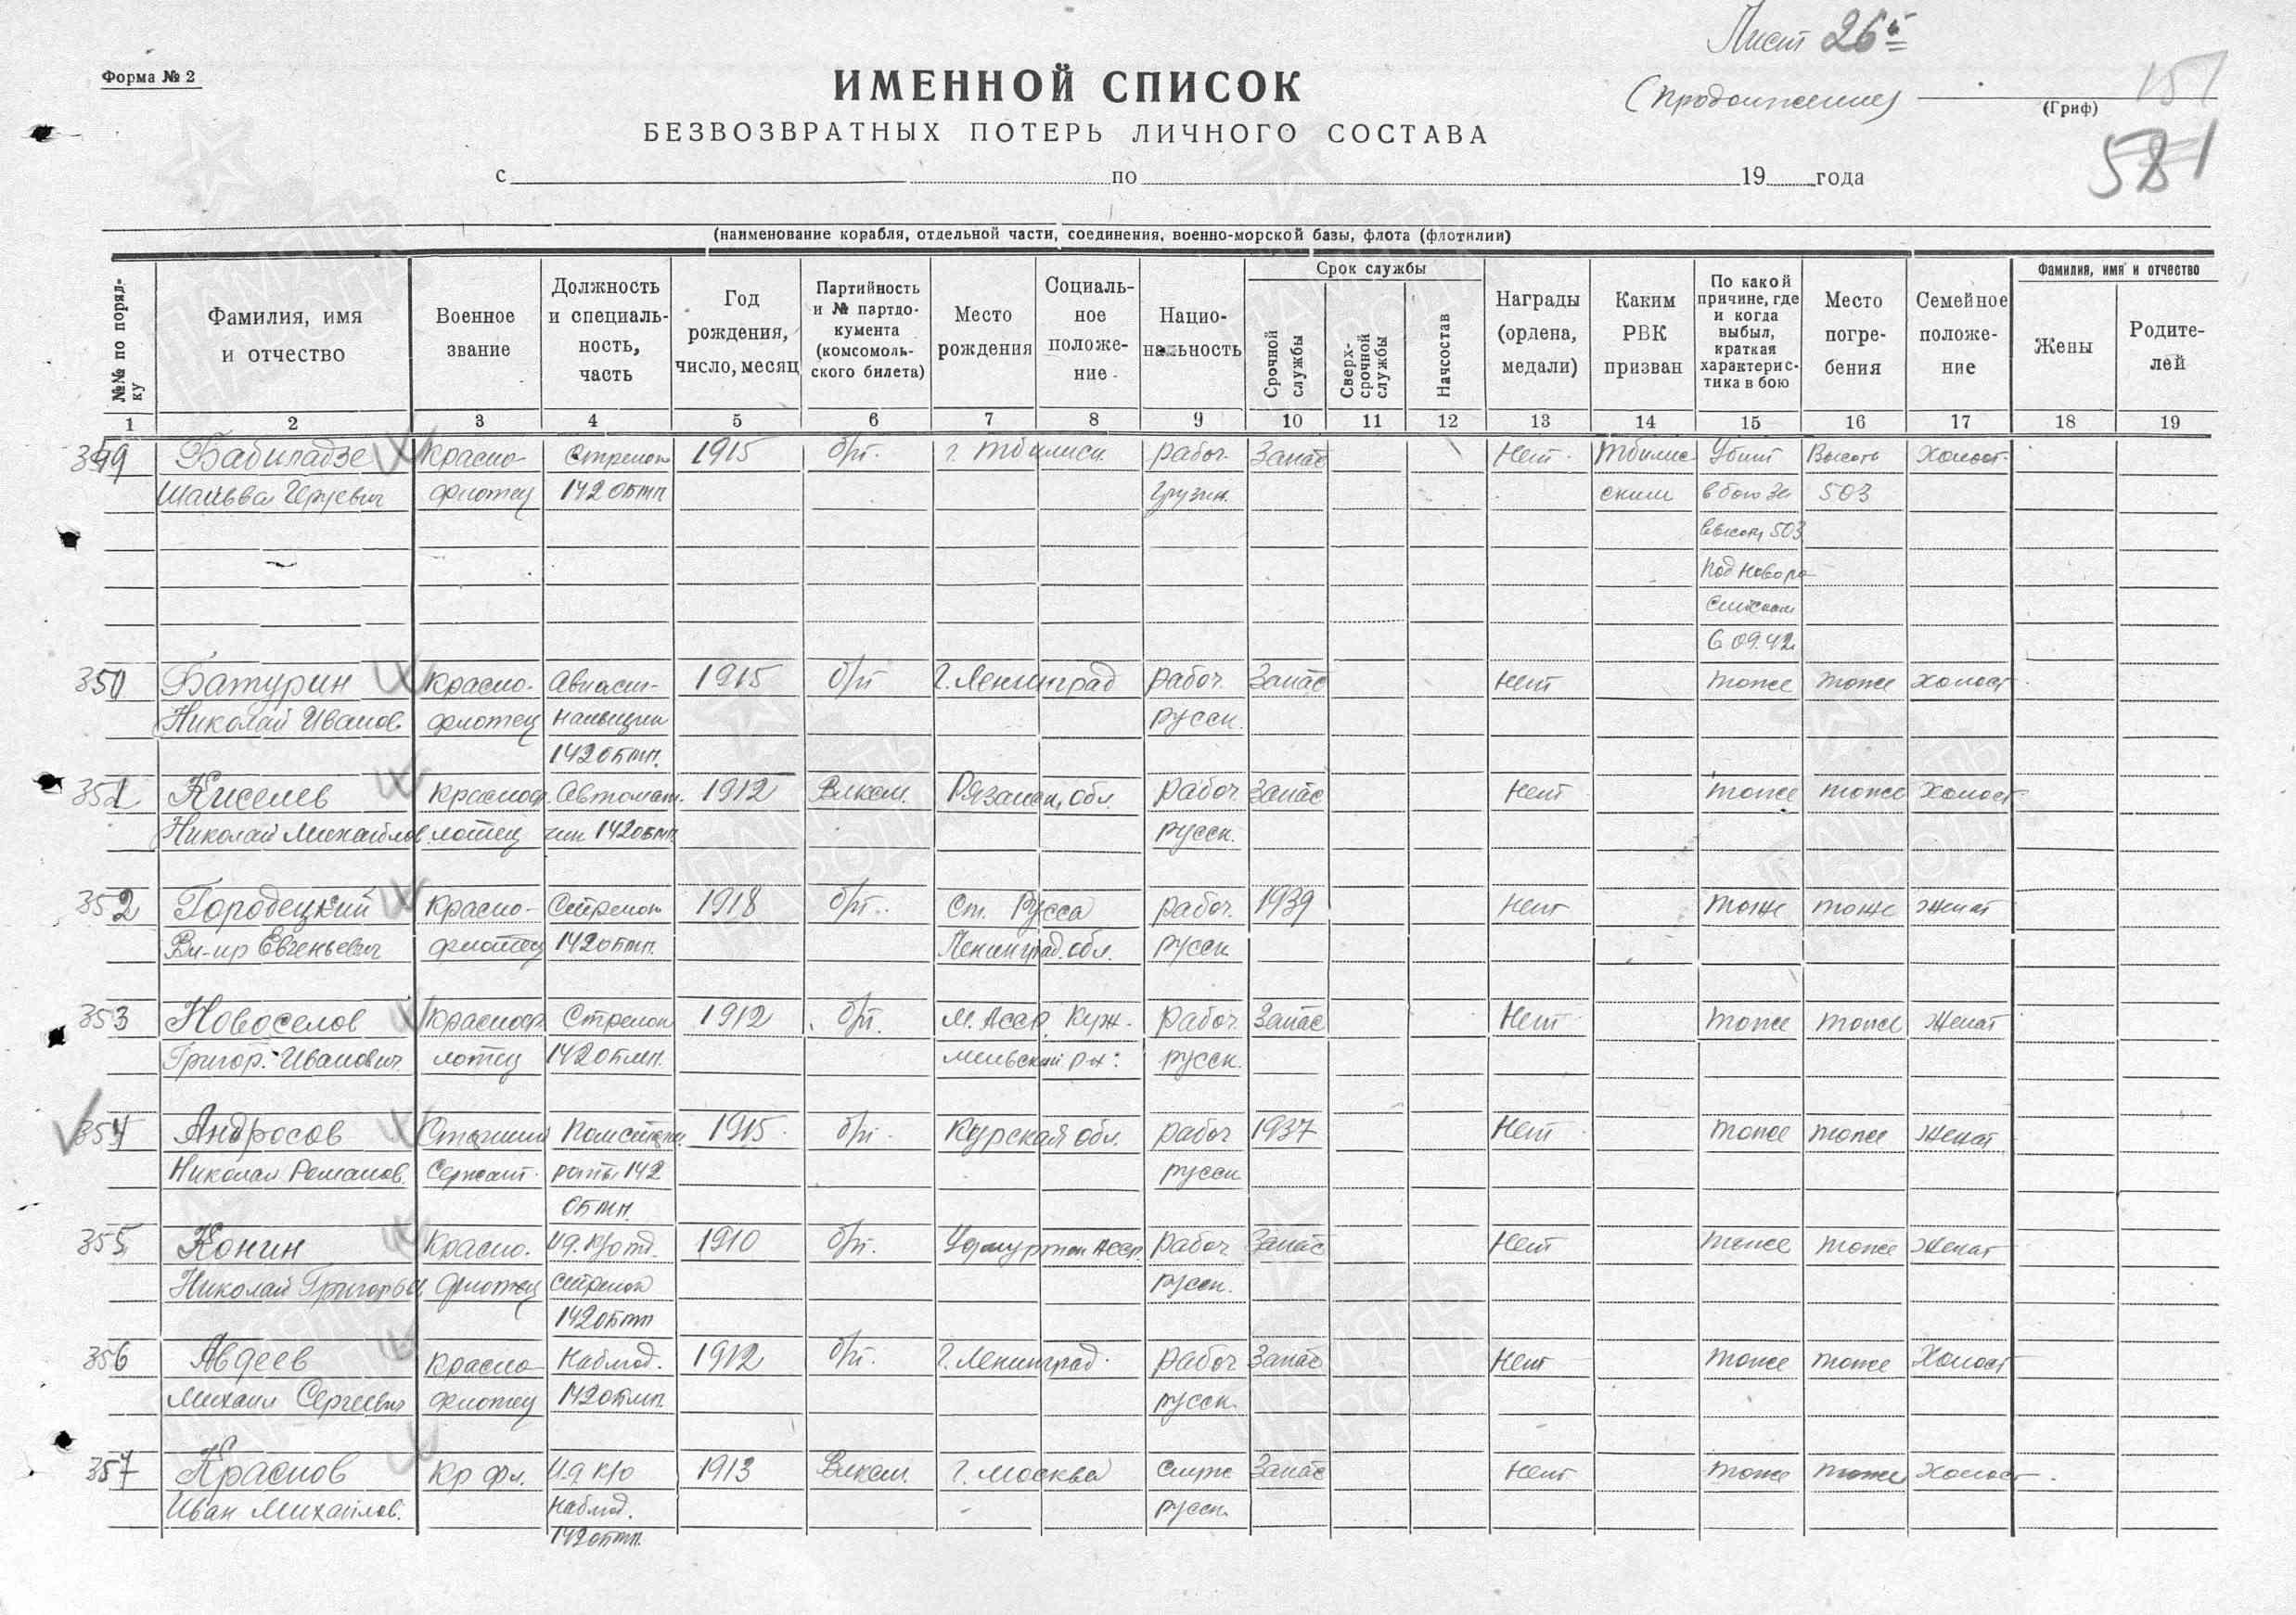 Лист 26
(продолжение)
Форма № 2
ИМЕННОЙ СПИСОК
(Гриф)
151
БЕЗВОЗВРАТНЫХ ПОТЕРЬ ЛИЧНОГО СОСТАВА
581
с по 19 года
(наименование корабля, отдельной части, соединения, военно-морской базы, флота (флотилии)
№№ по поряд-
ку
Фамилия, имя
и отчество
Военное
звание
Должность
и специаль-
ность,
часть
Год
рождения,
число, месяц
Партийность
и № партдо-
кумента
(комсомоль-
ского билета)
Место
рождения
Социаль-
ное
положе-
ние
Нацио-
нальность
Срок службы
Срочной
службы
Сверх-
срочной
службы
Начсостав
Награды
(ордена,
медали)
Каким
РВК
призван
По какой
причине, где
и когда
выбыл,
краткая
характерис-
тика в бою
Место
погре-
бения
Семейное
положе-
ние
Фамилия, имя и отчество
Жены
Родите-
лей
1 2 3 4 5 6 7 8 9 10 11 12 13 14 15 16 17 18 19
349 Бабиладзе Красно- Стрелок 1915 б/п. г. Тбилиси рабоч. Запас Нет. Тбилис Убит Высота Холост.
флотец 142 ОБМП Грузин. ским в бою за 503
высоту 503
под Новоро-
сийском
6.09.42
350 Батурин Красно- 1915 б/п г. Ленинград рабоч. Запас Нет тоже тоже холост
Николай Иванов. флотец русск.
142 ОБМП.
351 Киселев Красноф. Автомат. 1912 Влксм. Рязанск. обл. рабоч. Запас Нет тоже тоже холост
Николай Михайлов. лотец чик 142 ОБМП. русск.
352 Городецкий Красно- Стрелок 1918 б/п. Ст. Русса рабоч. 1939 Нет тоже тоже женат
Вл-ир Евгеньевич флотец 142 ОБМП. Ленинград. обл. русск
353 Новоселов Красноф. Стрелок 1912 б/п. М. Асср Куж- рабоч. Запас Нет тоже тоже женат
Григор. Иванович лотец 142 ОБМП. русск.
354 Андросов Старший 1915 б/п. Курская обл. рабоч 1937 Нет тоже тоже женат
Николай Романов. Сержант роты 142 русск
ОБМП.
355 Конин Красно. И.д. к/отд. 1910 б/п. Удмуртск Асср. рабоч Запас Нет тоже тоже женат
Николай Григорьев флотец стрелок русск.
142 ОБМП
356 Авдеев Красно- Наблюд. 1912 б/п. г. Ленинград. рабоч Запас Нет тоже тоже холост
Михаил Сергеевич флотец 142 ОБМП. русск.
357 Краснов Кр фл. И.д. к/о 1913 Влксм. г. Москва служ Запас нет тоже тоже холост.
Иван Михайлов. наблюд. русск.
142 ОБМП.